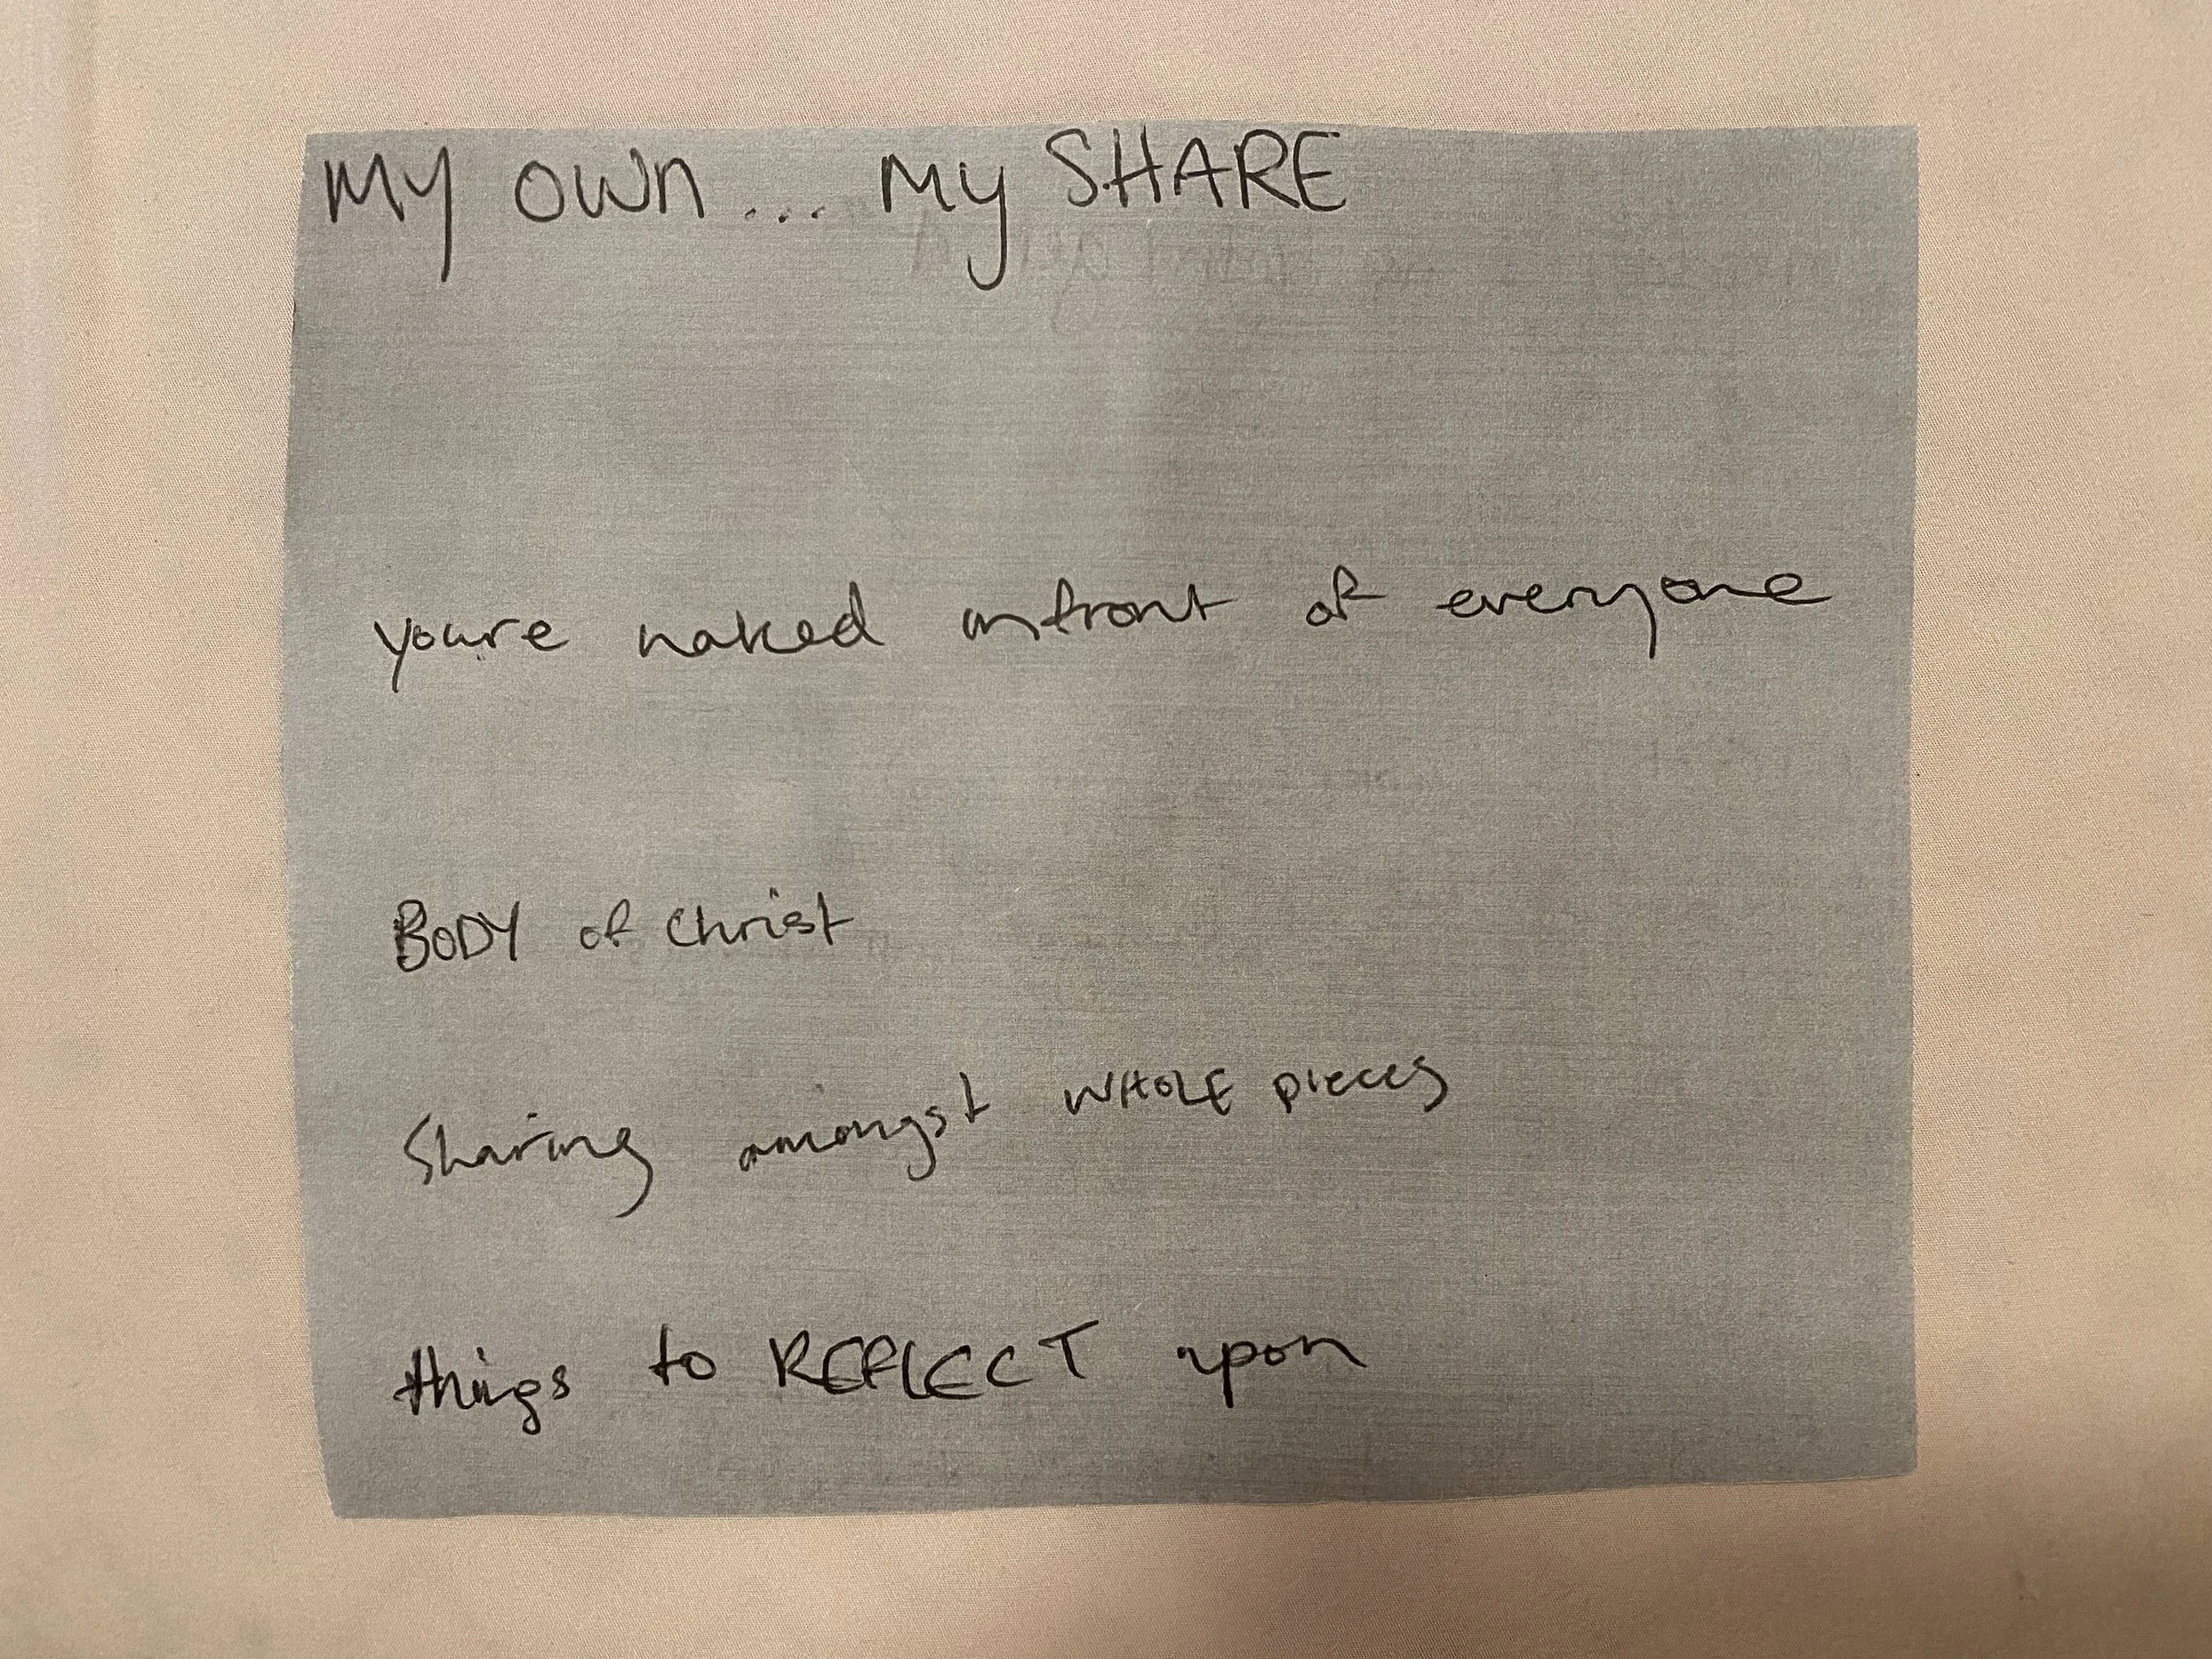 MY OWN... My SHARE
youre naked infront of everyone
BODY of Christ
Sharing amongst WHOLE pieces
things to REFLECT upon